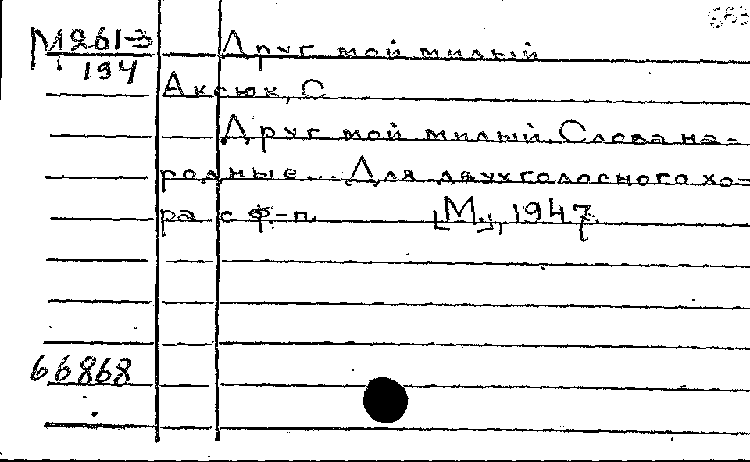 М 261-3
194
Друг мой милый
Аксюк, С
Друг мой милый. Слова на-
родные. Для двухголосного хо-
ра с ф-п. [М.], 1947.
66868